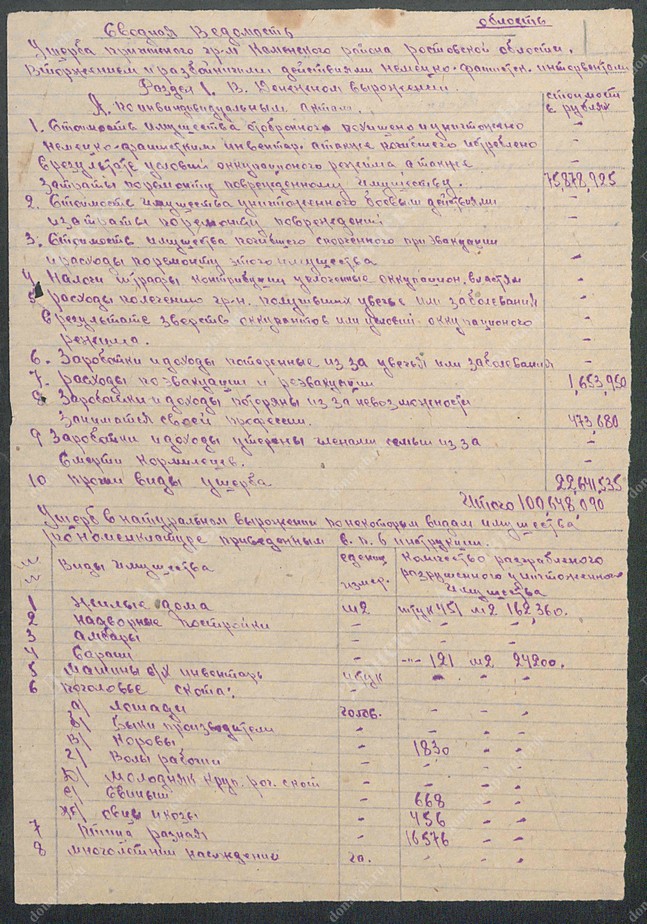 область
Сводная Ведомость
Ущерба причиненого гр-м Каменского района Ростовской области,
Вторжением и разбойничими действиями немецко-фашистск. интервентами
Раздел 1. В. Денежном вырожении.
А. По индивидуальным актам. стоимость в рублях
1. Стоимость имущества отобранного похищено и уничтожено -
немецко-фашистким инвентар. а также погибшего истреблено -
в результате условий оккупационого режима а также -
затраты по ремонту поврежденному имуществу. 75,878,925
2. Стоимость имущества уничтоженого боевым действиями -
и затраты по ремонту повреждений -
3. Стоимость имущества погибшего споченного при эвакуации -
и расходы по ремонту этого имущества -
4 Налоги штрафы контрибуции уплоченные оккупацион. властям -
5 расходы по лечению гр-н. получивших увечье или заболевания -
в результате зверств оккупантов или условий оккупационого -
режима. -
6. Заработки и доходы потеренные из за увечья или заболевания -
7. расходы по эвакуации и реэвакуации 1,653,950
8 Заработки и доходы потеряны из за невозможности
Заниматся своей професии. 473,680
9 Заработки и доходы утеряны членами семьи из за -
Смерти Кормильцев. -
10 прочии виды ущерба 22,641,535
Итого 100,648,090
Ущерб в натуральном вырожении по некоторым видам имущества
по номенклатуре приведенным в. п. 6 инструкции.
Виды имущества единиц измер. Количество разграбленого
разрушенного уничтоженного
имущества
1 Жилые дома м2 штук 451 м2 162,360.
2 надворные постройки - - - -
3 амбары - - - -
4 Сараи - -"- 121 м2 24200.
5 машины с/х инвентарь штук - - -
6 Поголовье скота:
а/ лошади голов. - - -
б/ Быки производители - - - -
в/ Коровы - 1830 - -
г/ Волы рабочии - - - -
д/ молодняк круп. рог. скот - - - -
е/ Свиньи - 668 - -
ж/ овцы и козы - 456 - -
7 Птица разная - 16576 - -
8 многолетнии насаждении га. - - -